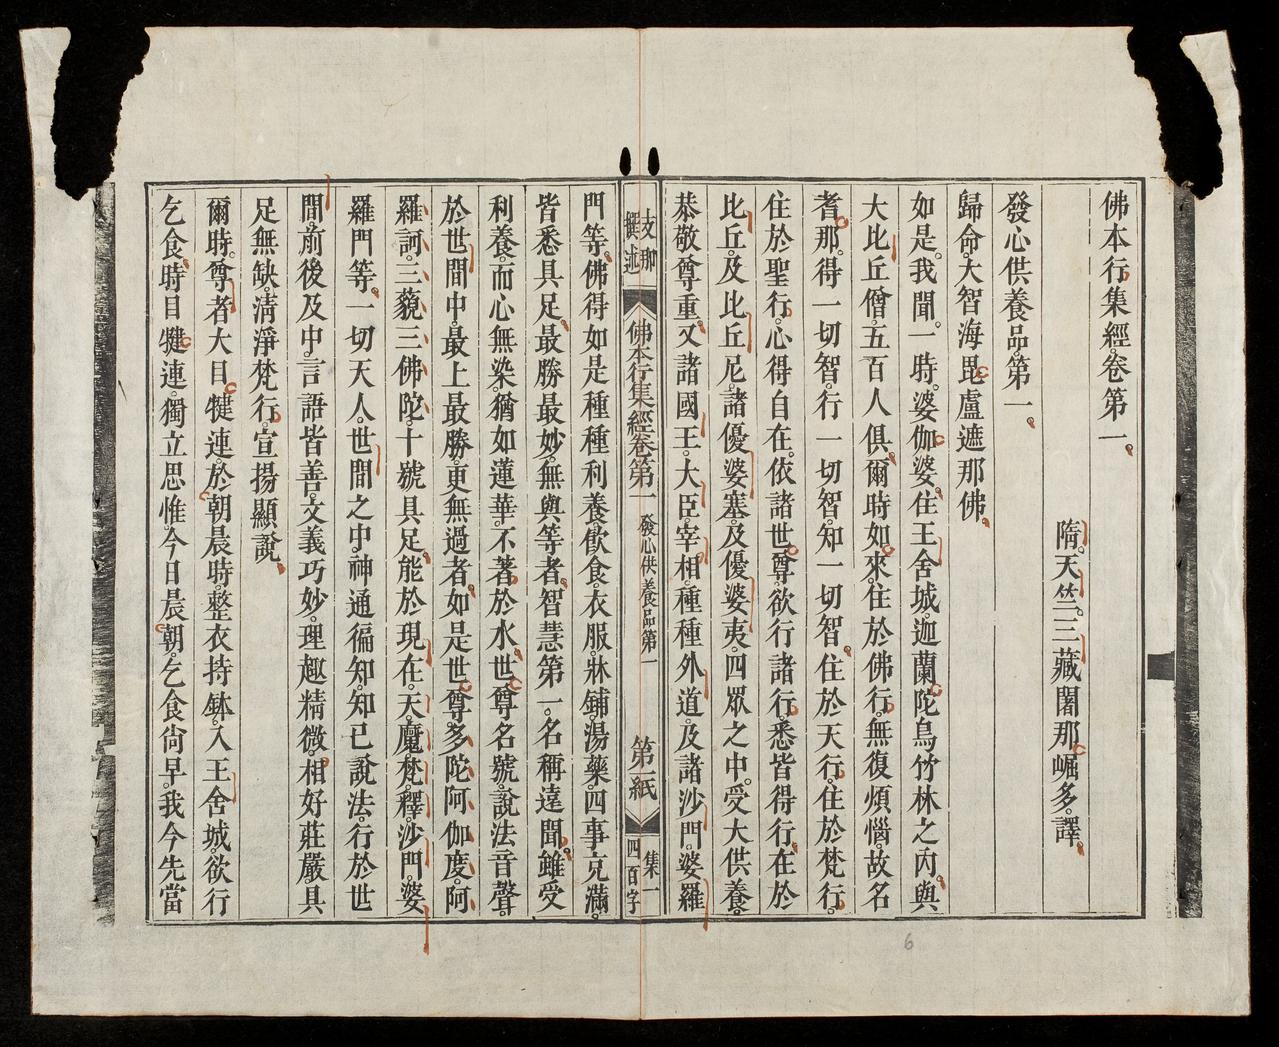 佛本行集經卷第一。
隋。天竺。三藏闍那崛多。譯。
發心供養品。第一。
歸命。大智海毘盧遮那佛。
如是。我聞。一時。婆伽婆。住王舍城。迦蘭陀鳥竹林之內。與
大比丘僧。五百人俱。爾時。如來。住於佛行。無復煩惱。故名
耆那。得一切智。行一切智。知一切智。住於天行。住於梵行。
住於聖行。心得自在。依諸世尊。欲行諸行。悉皆得行。在於
比丘。及比丘尼。諸優婆塞。及優婆夷。四眾之中。受大供養。
恭敬尊重。又諸國王。大臣。宰相。種種外道。及諸沙門。婆羅
支那撰述
佛本行集經卷第一
發心供養品第一
第一紙
集一
四百字
門等。佛得如是種種利養。飲食。衣服。牀鋪。湯藥。四事充滿。
皆悉具足。最勝最妙。無與等者。智慧第一。名稱遠聞。雖受
利養。而心無染。猶如蓮華。不著於水。世尊名號。說法音聲。
於世間中。最上最勝。更無過者。如是世尊。多陀阿伽度。阿
羅訶。三藐三佛陀。十號具足。能於現在。天魔梵釋。沙門。婆
羅門等。一切天人。世間之中。神通徧知。知已說法。行於世
間。前後及中。言語皆善。文義巧妙。理趣精微。相好莊嚴。具
足無缺。清淨梵行。宣揚顯說。
爾時。尊者大目犍連。於朝晨時。整衣持鉢。入王舍城。欲行
乞食。時目犍連。獨立思惟。今日晨朝。乞食尙早。我今先當
6